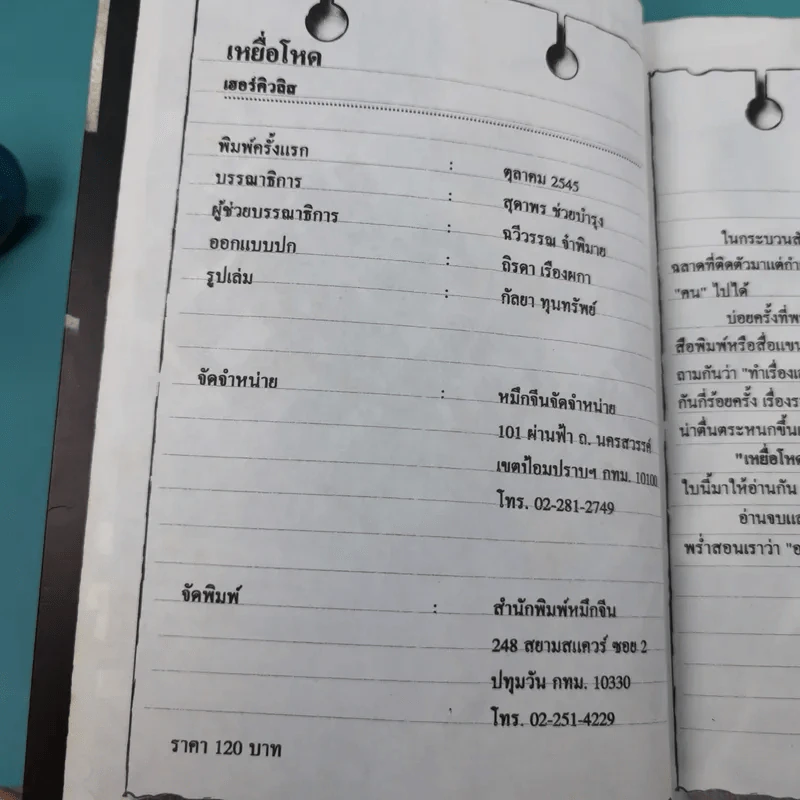 เหยื่อโหด
เฮอร์คิวลิส
พิมพ์ครั้งแรก : ตุลาคม 2545
บรรณาธิการ : สุดาพร ช่วยบำรุง
ผู้ช่วยบรรณาธิการ : ฉวีวรรณ จำพิมาย
ออกแบบปก : ถิรดา เรืองผกา
รูปเล่ม : กัลยา ทุนทรัพย์
จัดจำหน่าย : หมึกจีนจัดจำหน่าย
101 ผ่านฟ้า ถ. นครสวรรค์
เขตป้อมปราบฯ กทม. 10100
โทร. 02-281-2749
จัดพิมพ์ : สำนักพิมพ์หมึกจีน
248 สยามสแควร์ ซอย 2
ปทุมวัน กทม. 10330
โทร. 02-251-4229
ราคา 120 บาท
ในกระบวน
ฉลาดที่ติดตัวมาแต่
"คน" ไปได้
บ่อยครั้งที่
สือพิมพ์หรือสื่อ
ถามกันว่า "ทำเรื่อง
กันกี่ร้อยครั้ง เรื่อง
น่าตื่นตระหนกขึ้น
"เหยื่อโหด
ใบนี้มาให้อ่านกัน
อ่านจบ
พร่ำสอนเราว่า